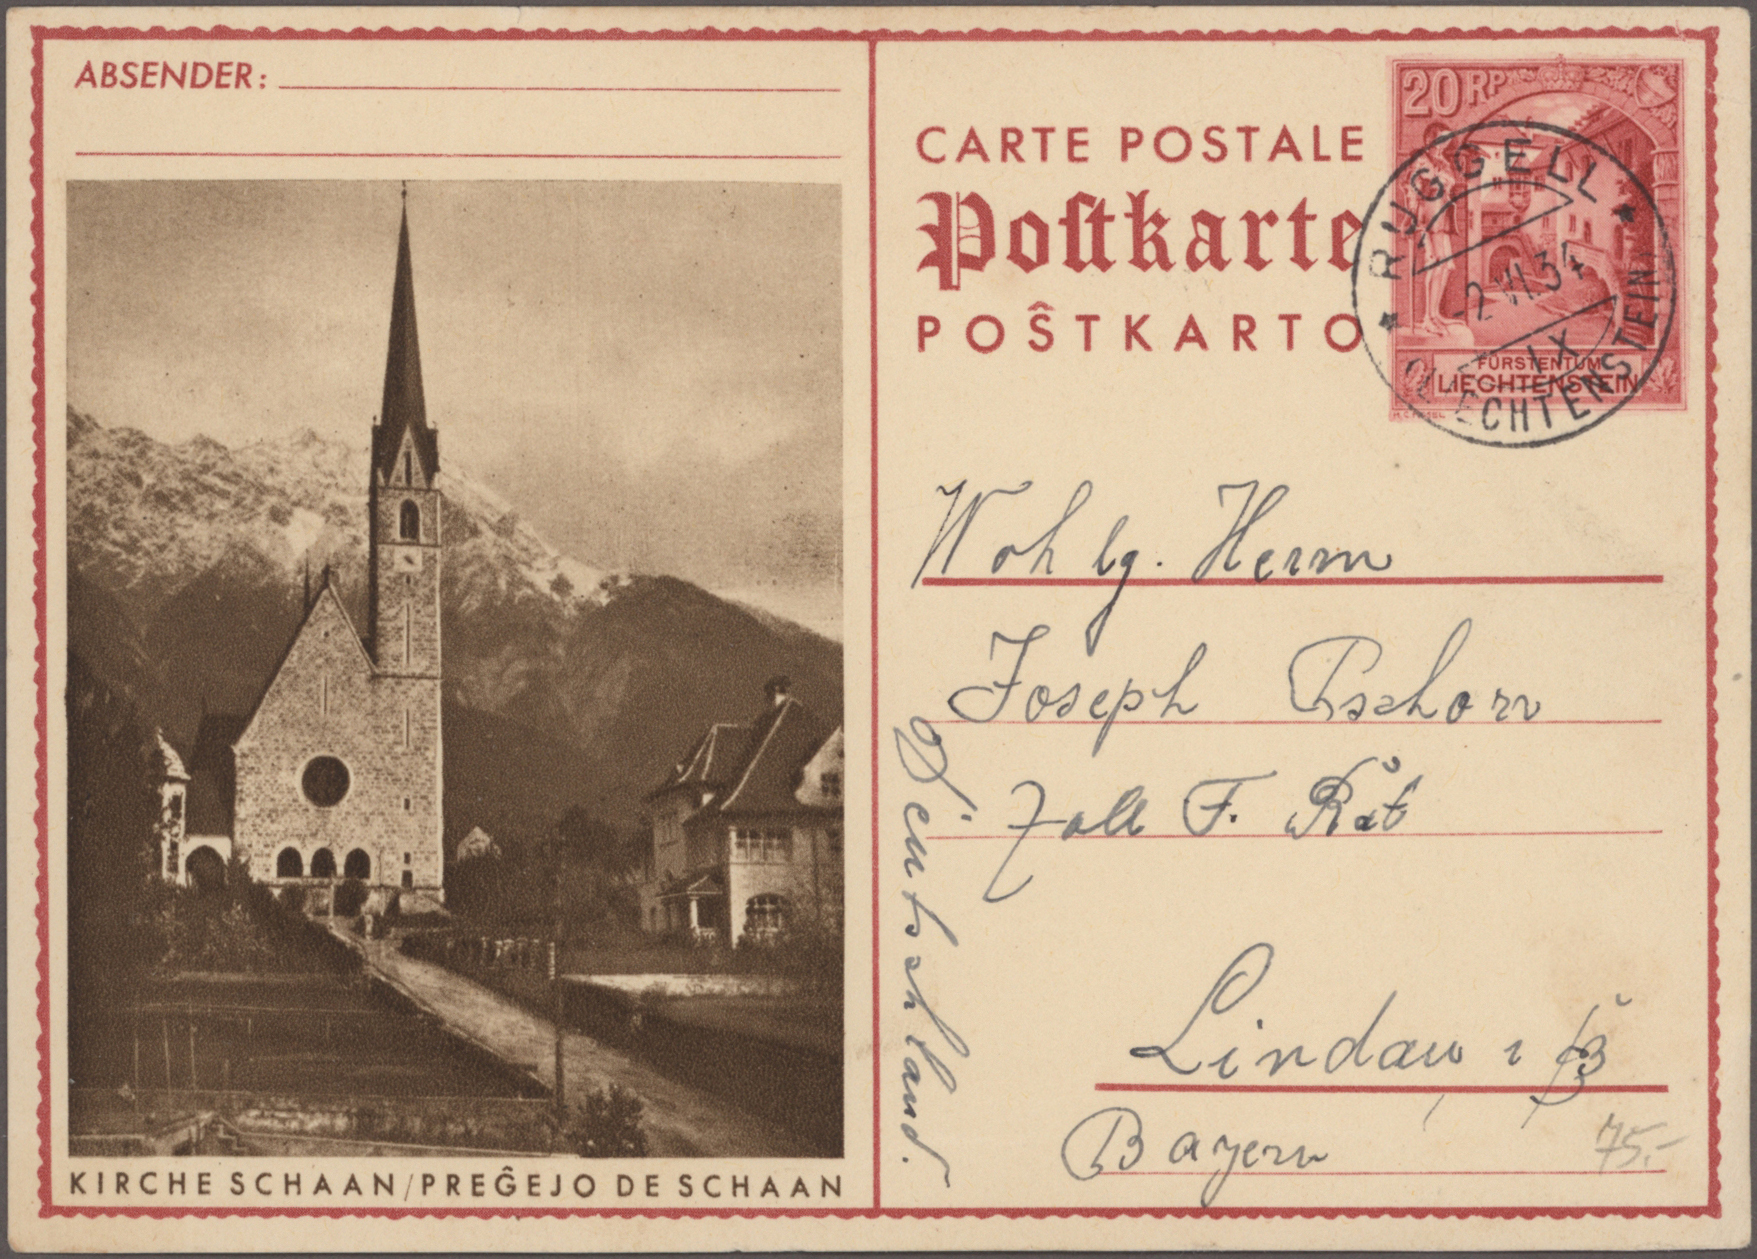 ABSENDER:
KIRCHE SCHAAN/PREĜEJO DE SCHAAN
CARTE POSTALE
Poſtkarte
POŜTKARTO
20 RP
FÜRSTENTUM
LIECHTENSTEIN
RUGGELL
-2.VI.34
IX
LIECHTENSTEIN
Wohlg. Herrn
Joseph Pschorr
Zoll F. Rat
Lindau i/B
Bayern
Deutschland.
75.-